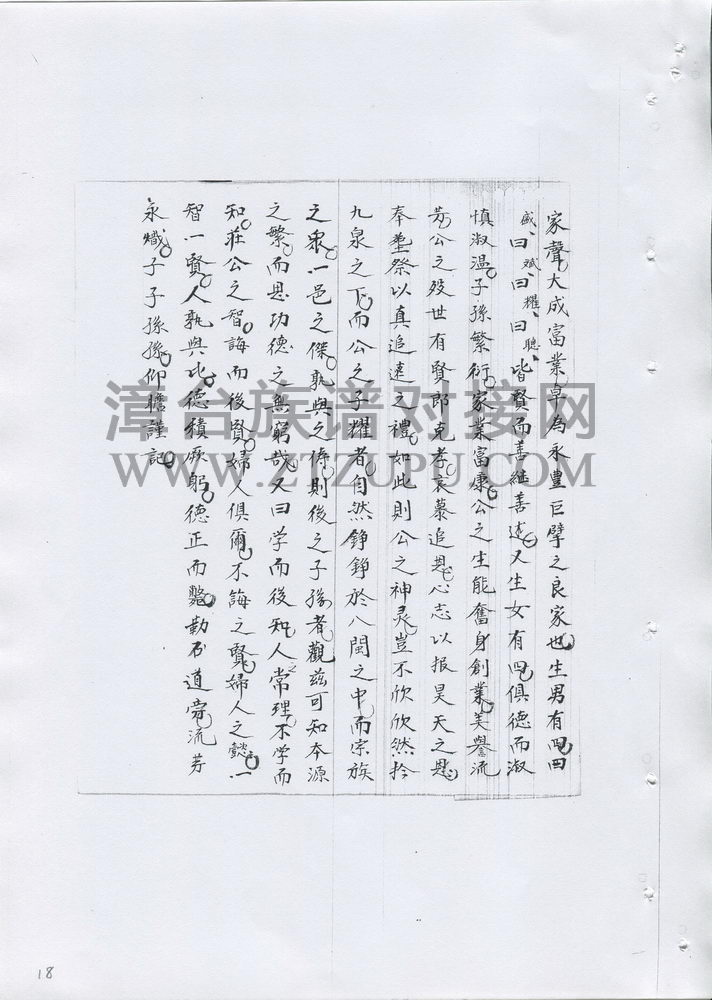 家聲大成富業早為永豐巨擘之良家也生男有四四
盛、曰斌、曰耀、曰聰、皆賢而善継善述又生女有四俱德而淑
慎淑温子孫繁衍家業富康公之生能奮身創業美譽流
芳公之歿世有賢郎克孝哀慕追思心志以报昊天之恩
奉塋祭以真追遠之禮如此則公之神灵豈不欣欣然於
九泉之下而公之子耀者自然錚錚於八閩之中而宗族
之衆一邑之傑孰與之儔則後之子孫者觀兹可知本源
之繁而思功德之無窮哉人曰学而後知人之常理不学而
知莊公之智誨而後賢婦人俱爾不誨之賢婦人之懿一
智一賢人孰與比德積厥躬德正而勒石道旁流芳
永熾子子孫孫仰瞻謹記
漳台族谱对接网
WWW.ZTZUPU.COM
18